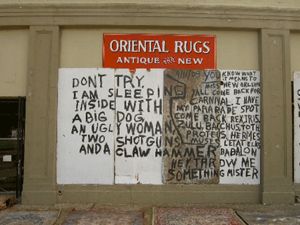 ORIENTAL RUGS
ANTIQUE AND NEW
DON'T TRY
I AM SLEEPING
INSIDE WITH
A BIG DOG
AN UGLY WOMAN
TWO SHOTGUNS
AND A CLAW HAMMER
YOU KNOW WHAT
IT MEANS TO
MISS NEW ORLEANS
Y'ALL COME BACK FOR
CARNIVAL. I HAVE
MY PARADE SPOT
COME BACK REX, IRIS,
ZULU, BACCHUS, TOTH
PROTEUS, HERMES
MUSES
BABALON
THROW ME
SOMETHING MISTER